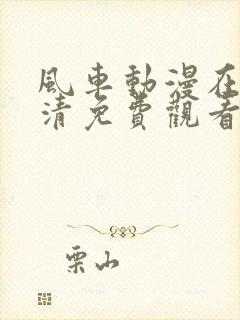 風車動漫在
清免費觀看
栗山